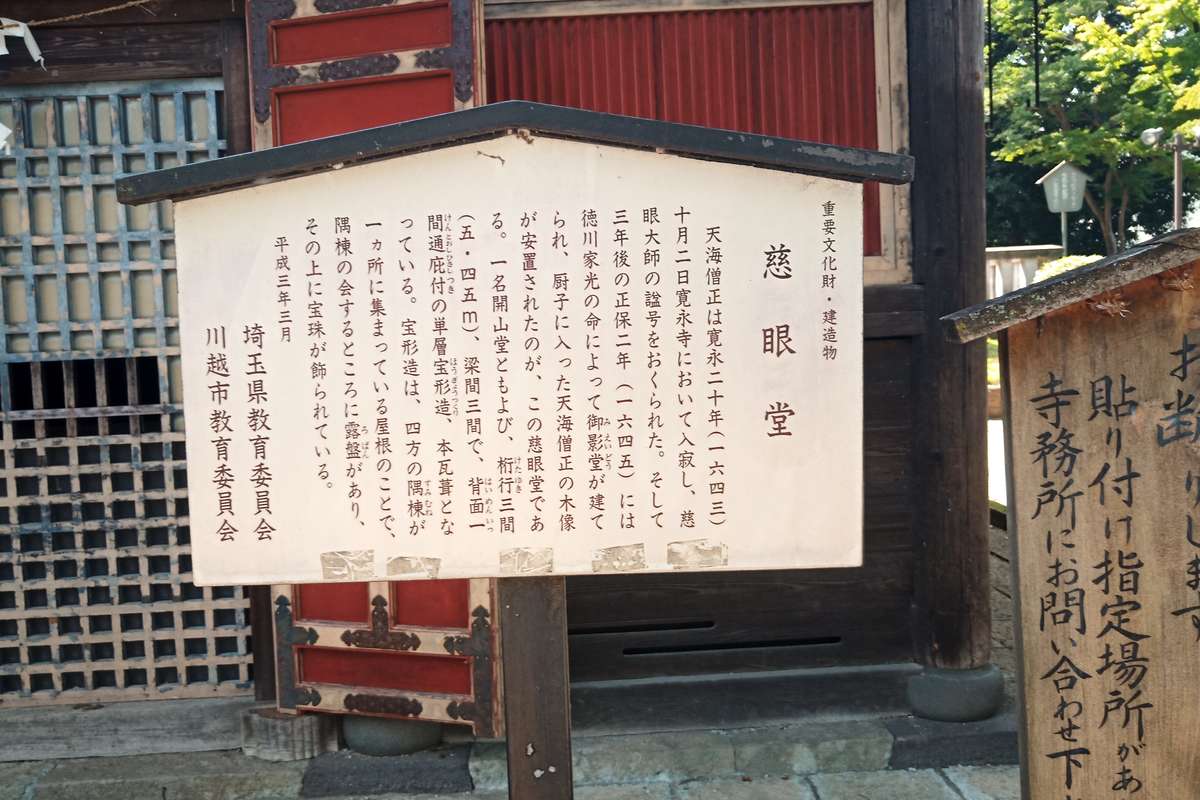 重要文化財・建造物
慈眼堂
天海僧正は寛永二十年(一六四三)
十月二日寛永寺において入寂し、慈
眼大師の諡号をおくられた。そして
三年後の正保二年(一六四五)には
徳川家光の命によって御影堂が建て
られ、厨子に入った天海僧正の木像
が安置されたのが、この慈眼堂であ
る。一名開山堂ともよび、桁行三間
(五・四五m)、梁間三間で、背面一
間通庇付の単層宝形造、本瓦葺とな
っている。宝形造は、四方の隅棟が
一ヵ所に集まっている屋根のことで、
隅棟の会するところに露盤があり、
その上に宝珠が飾られている。
平成三年三月
埼玉県教育委員会
川越市教育委員会
お断りします
貼り付け指定場所があ
寺務所にお問い合わせ下